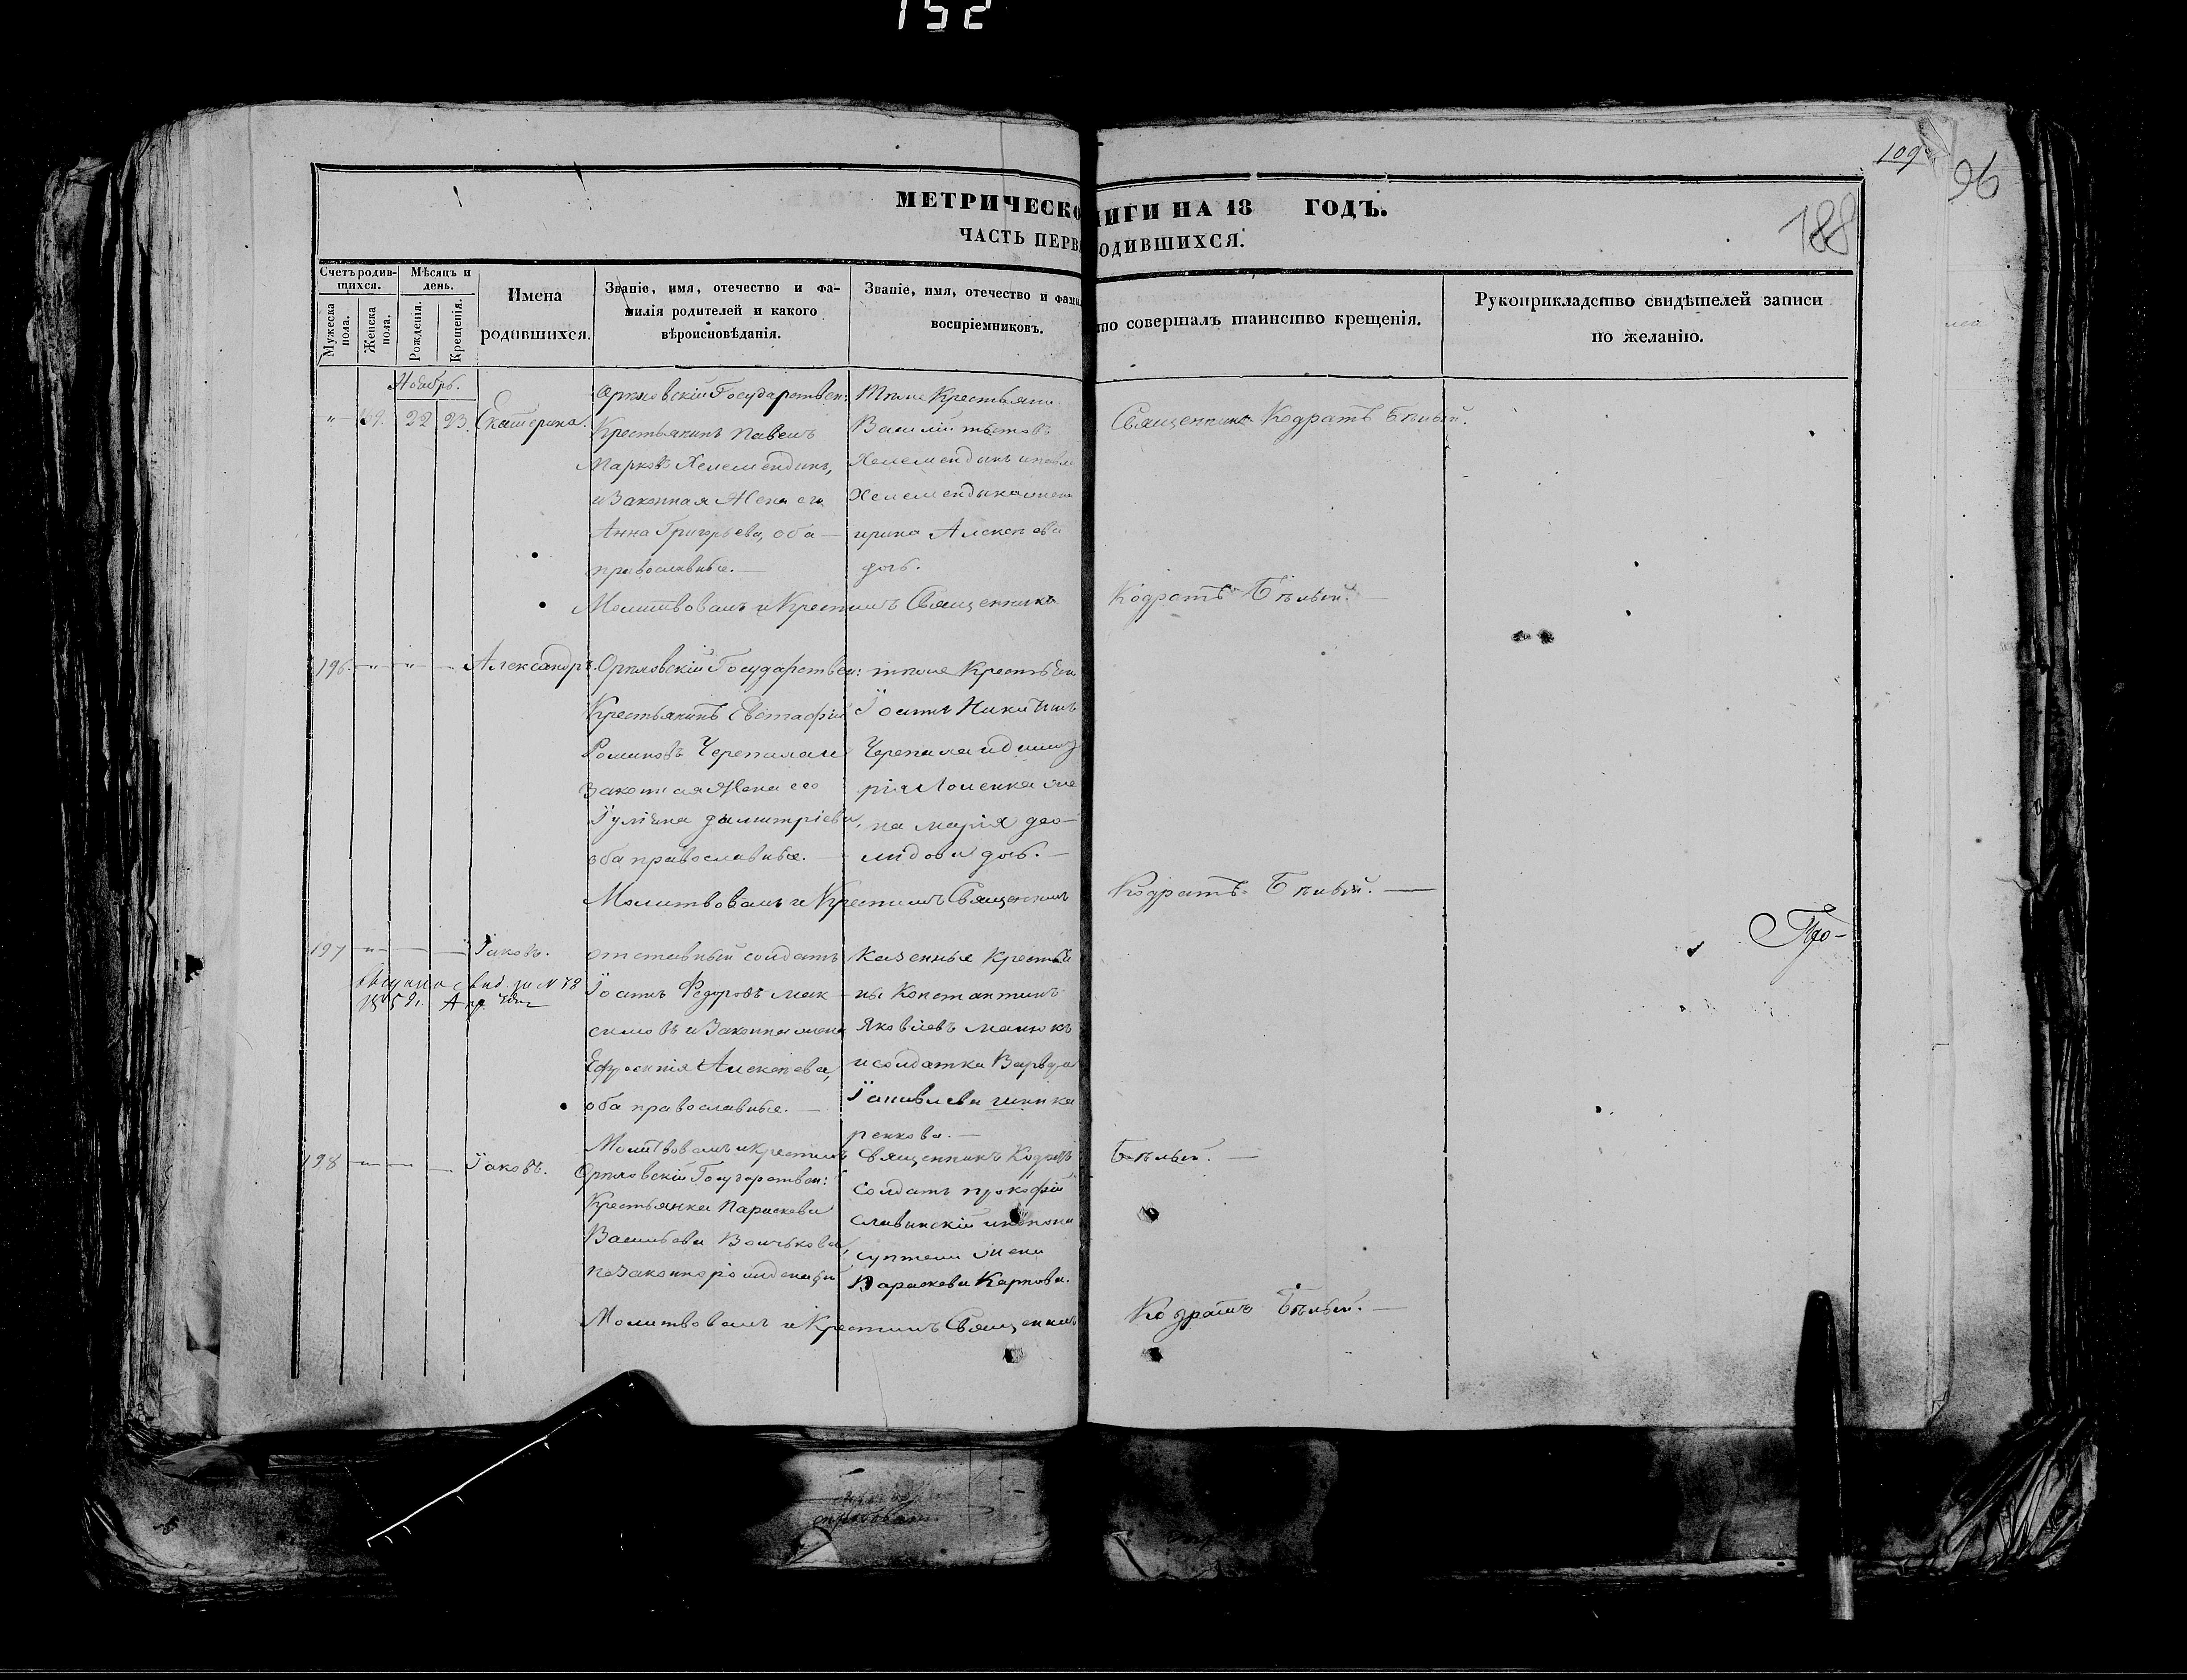 152
109
96
188
МЕТРИЧЕСКО ИГИ НА 18 ГОДЪ.
ЧАСТЬ ПЕРВ ОДИВШИХСЯ.
Счетъ родив-
шихся.
Мужеска пола.
Женска пола.
Мѣсяцъ и
день.
Рожденія.
Крещенія.
Имена
родившихся.
Званіе, имя, отечество и фа-
милія родителей и какого
вѣроисповѣданія.
Званіе, имя, отечество и фами
воспріемниковъ.
то совершалъ таинство крещенія.
Рукоприкладство свидѣтелей записи
по желанію.
Ноябрь.
22 23. Екатерина.
Государствен:
Крестьянинъ Павелъ
Марковъ Хелемендикъ,
и Законная Жена его
Анна Григорьева, оба
православные.
Тѣже Крестьяни
Василій Титовъ
Хелемендикъ
Хелемендика жена
ирина Алексѣева
дочь.
Священникъ Кодратъ Бѣлый.
Молитвовалъ и Крестилъ Священникъ Кодратъ Бѣлый.
196. Александръ.
Государствен:
Крестьянинъ Евстафій
Романовъ Черепаха и
Законная Жена его
Іуліана Димитріева,
оба православные.
тѣже Крестьян
Іоаннъ Никитинъ
Черепаха
на Марія Део-
мидова дочь.
Молитвовалъ и Крестилъ Священникъ Кодратъ Бѣлый.
Про-
197 Іаковъ.
отставный солдатъ
Іоаннъ Федоровъ Мак-
симовъ и Законная жена
Ефросинія Алексѣева,
оба православные.
Казенные Крестья
ны Константинъ
Яковлевъ
и солдатка Варвара
ренкова.
Молитвовалъ и Крестилъ Священникъ Кодратъ Бѣлый.
198 Іаковъ.
Государствен:
Крестьянка Параскева
Васильева Волчкова,
незаконнорожденный
Солдатъ Прокофій
Славинскій
жена
Параскева Карпова.
Молитвовалъ и Крестилъ Священникъ Кодратъ Бѣлый.